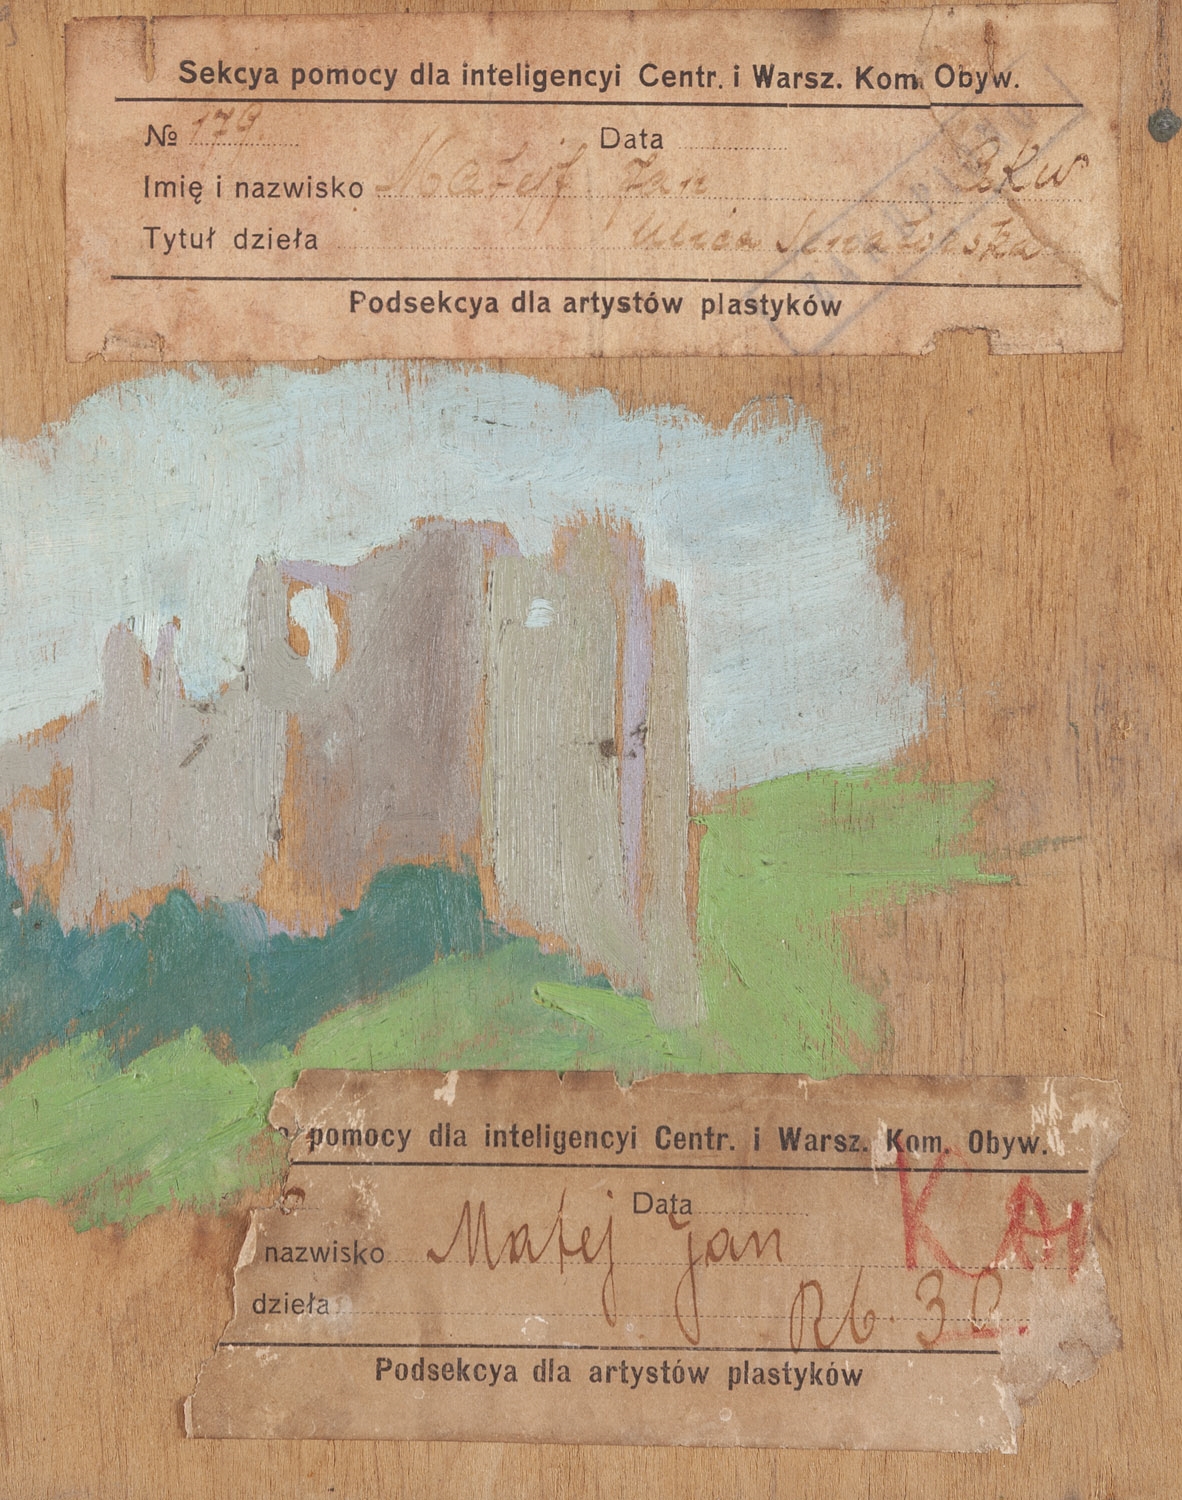 Sekcya pomocy dla inteligencyi Centr. i Warsz. Kom. Obyw.
№ 179. Data
Imię i nazwisko Matejj Jan
Tytuł dzieła ulica Senatorska
Podsekcya dla artystów plastyków
pomocy dla inteligencyi Centr. i Warsz. Kom. Obyw.
Data
nazwisko Matej Jan
dzieła Rb. 30.
Podsekcya dla artystów plastyków